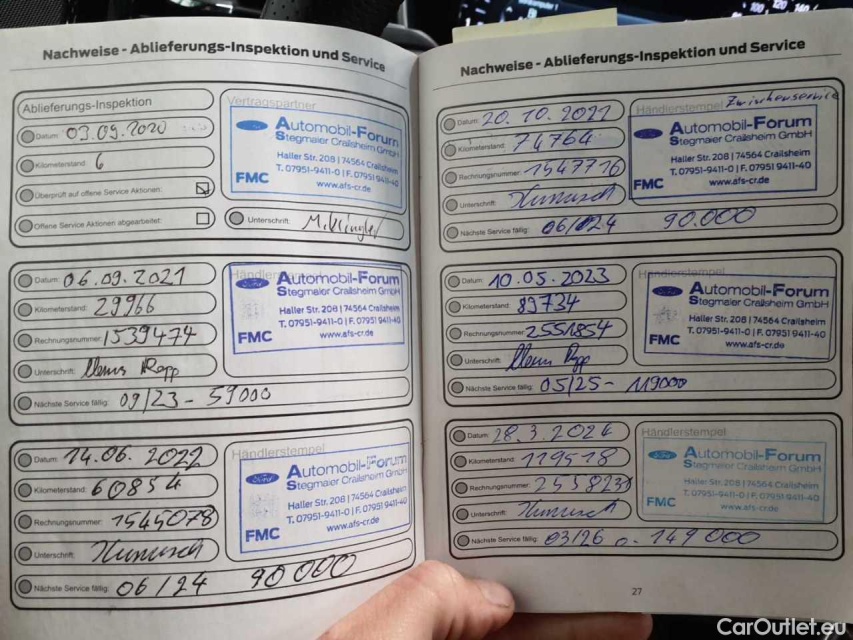 Nachweise - Ablieferungs-Inspektion und Service
Ablieferungs-Inspektion
Datum: 03.09.2020
Kilometerstand: 6
Überprüft auf offene Service Aktionen:
Offene Service Aktionen abgearbeitet:
Vertragspartner
Ford
Automobil-Forum
Stegmaier Crailsheim GmbH
Haller Str. 208 | 74564 Crailsheim
T. 07951-9411-0 | F. 07951 9411-40
FMC www.afs-cr.de
Unterschrift:
Datum: 06.09.2021
Kilometerstand: 29966
Rechnungsnummer: 1539474
Unterschrift:
Nächste Service fällig: 09/23 - 59000
Automobil-Forum
Stegmaier Crailsheim GmbH
Haller Str. 208 | 74564 Crailsheim
T. 07951-9411-0 | F. 07951 9411-40
FMC www.afs-cr.de
Datum: 14.06.2022
Kilometerstand: 60854
Rechnungsnummer: 1545078
Unterschrift:
Nächste Service fällig: 06/24 90000
Händlerstempel
Ford
Automobil-Forum
Stegmaier Crailsheim GmbH
Haller Str. 208 | 74564 Crailsheim
T. 07951-9411-0 | F. 07951 9411-40
FMC www.afs-cr.de
Nachweise - Ablieferungs-Inspektion und Service
Datum: 20.10.2022
Kilometerstand: 74764
Rechnungsnummer: 1547716
Unterschrift:
Nächste Service fällig: 06/24 90.000
Händlerstempel Zwischenservice
Ford
Automobil-Forum
Stegmaier Crailsheim GmbH
Haller Str. 208 | 74564 Crailsheim
T. 07951-9411-0 | F. 07951 9411-40
FMC www.afs-cr.de
Datum: 10.05.2023
Kilometerstand: 89734
Rechnungsnummer: 2551854
Unterschrift:
Nächste Service fällig: 05/25 - 119000
Händlerstempel
Automobil-Forum
Stegmaier Crailsheim GmbH
Haller Str. 208 | 74564 Crailsheim
T. 07951-9411-0 | F. 07951 9411-40
FMC www.afs-cr.de
Datum: 28.3.2024
Kilometerstand: 119518
Rechnungsnummer:
Unterschrift:
Nächste Service fällig: 03/26 o. 149000
Händlerstempel
Automobil-Forum
Stegmaier Crailsheim GmbH
Haller Str. 208 | 74564 Crailsheim
T. 07951-9411-0 | F. 07951 9411-40
FMC www.afs-cr.de
27
CarOutlet.eu